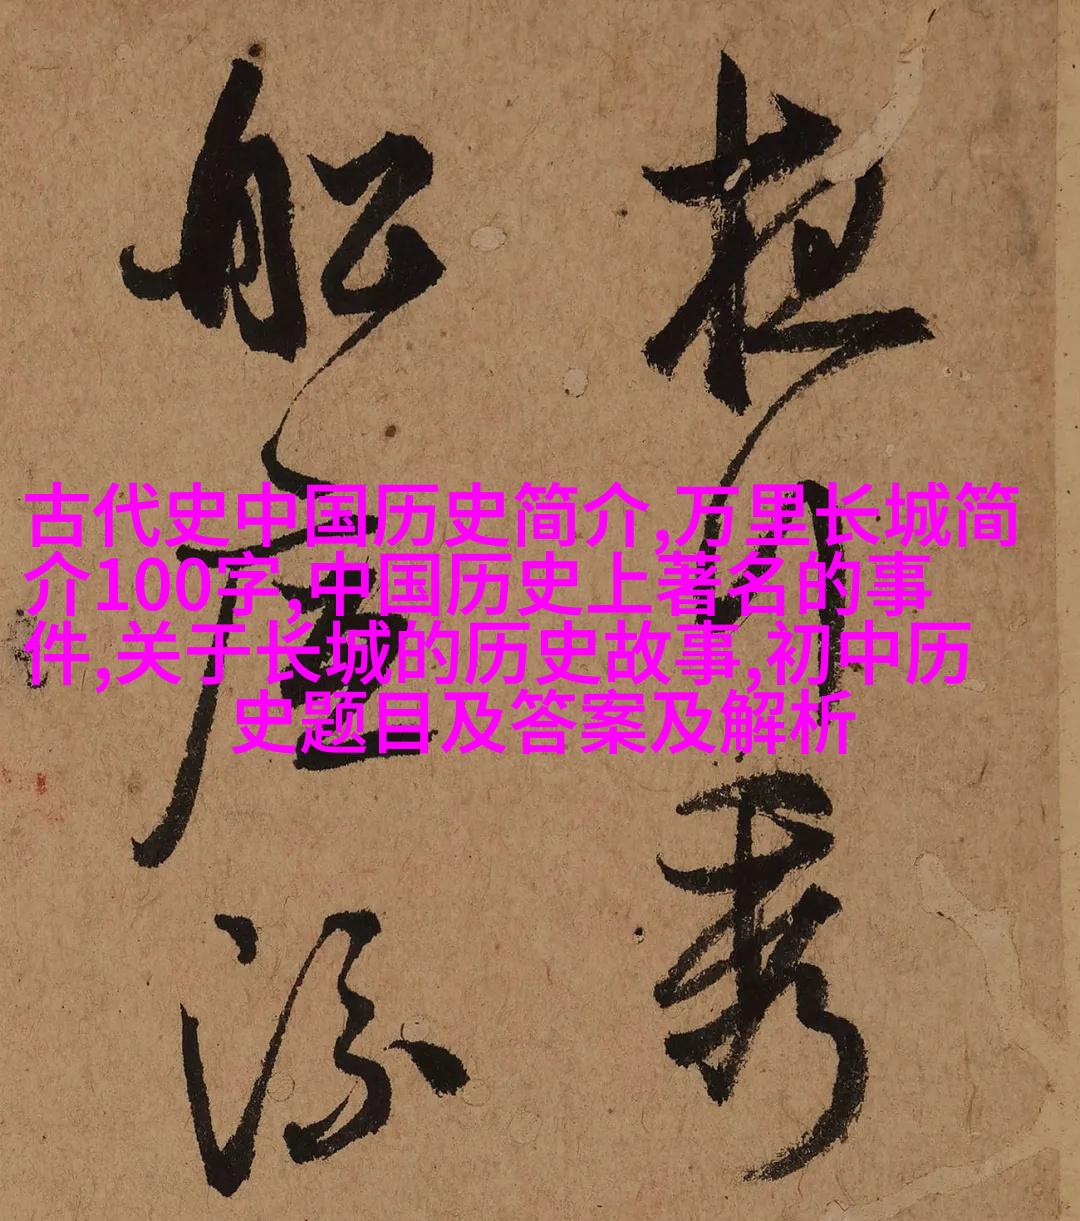 古代史中国历史简介,万里长城简
介100字,中国历史上著名的事
件,关于长城的历史故事,初中历
史题目及答案及解析
川秀
船